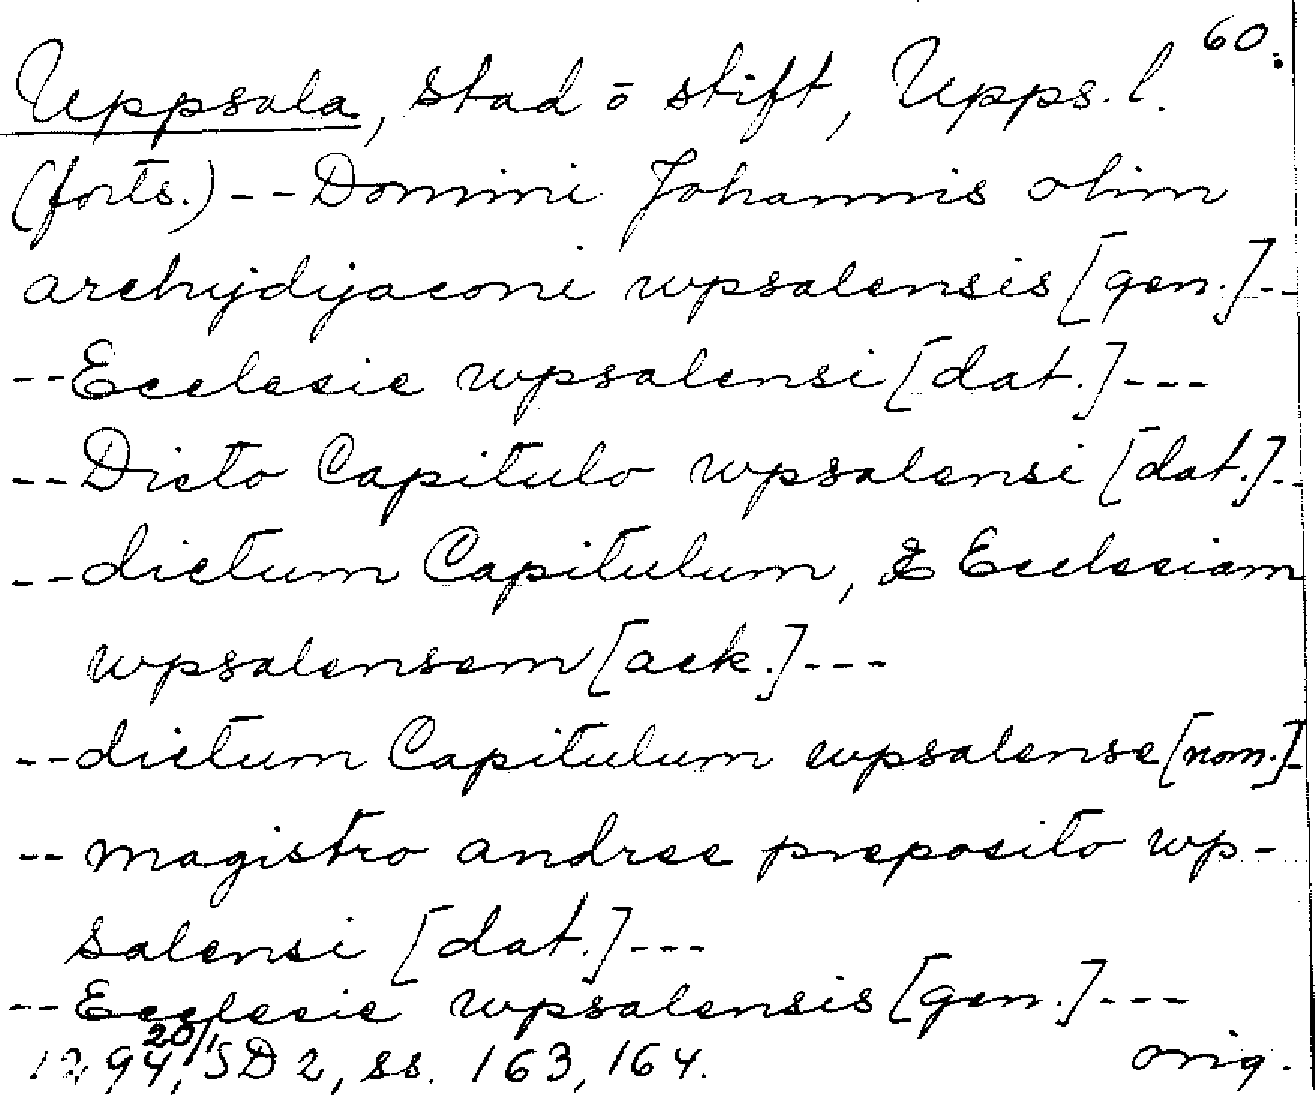 60.
Uppsala, stad o stift, Upps. l.
(forts.) -- Domini Johannis olim
archydyaconi wpsalensis [gen.] --
-- Ecclesie wpsalensi [dat.] ---
-- Dicto Capitulo wpsalensi [dat.] --
-- dictum Capitulum, & Ecclesiam
wpsalensem [ack.] ---
-- dictum Capitulum wpsalense [nom.] -
-- magistro andree preposito wp-
salensi [dat.] ---
-- Ecclesie wpsalensis [gen.] ---
1294 20/1, SD 2, ss. 163, 164. orig.